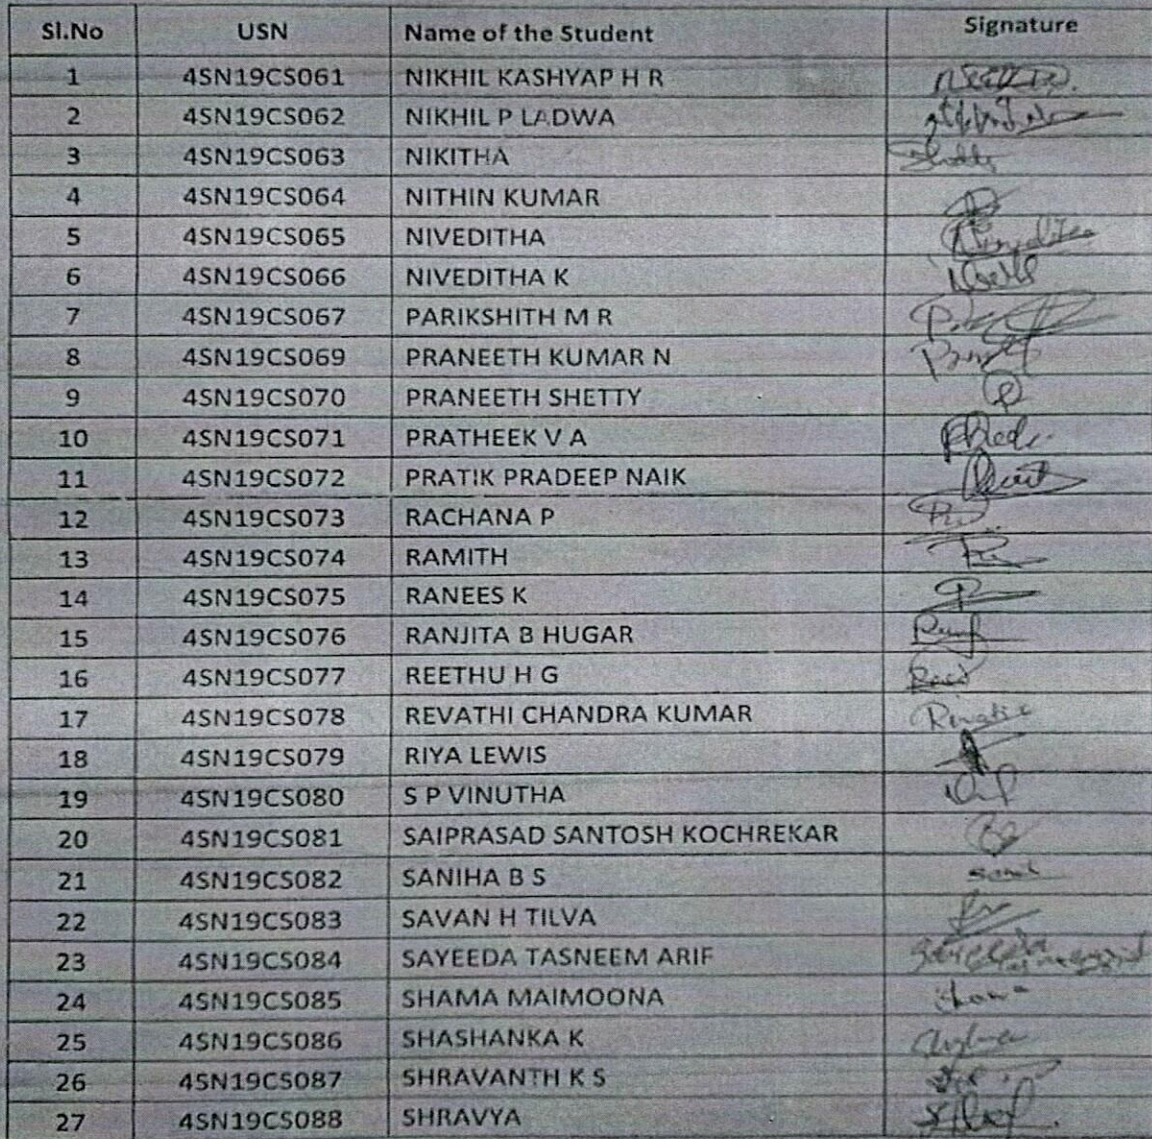 Sl.No USN Name of the Student Signature
1 4SN19CS061 NIKHIL KASHYAP H R
2 4SN19CS062 NIKHIL P LADWA
3 4SN19CS063 NIKITHA
4 4SN19CS064 NITHIN KUMAR
5 4SN19CS065 NIVEDITHA
6 4SN19CS066 NIVEDITHA K
7 4SN19CS067 PARIKSHITH M R
8 4SN19CS069 PRANEETH KUMAR N
9 4SN19CS070 PRANEETH SHETTY
10 4SN19CS071 PRATHEEK V A
11 4SN19CS072 PRATIK PRADEEP NAIK
12 4SN19CS073 RACHANA P
13 4SN19CS074 RAMITH
14 4SN19CS075 RANEES K
15 4SN19CS076 RANJITA B HUGAR
16 4SN19CS077 REETHU H G
17 4SN19CS078 REVATHI CHANDRA KUMAR
18 4SN19CS079 RIYA LEWIS
19 4SN19CS080 S P VINUTHA
20 4SN19CS081 SAIPRASAD SANTOSH KOCHREKAR
21 4SN19CS082 SANIHA B S
22 4SN19CS083 SAVAN H TILVA
23 4SN19CS084 SAYEEDA TASNEEM ARIF
24 4SN19CS085 SHAMA MAIMOONA
25 4SN19CS086 SHASHANKA K
26 4SN19CS087 SHRAVANTH K S
27 4SN19CS088 SHRAVYA